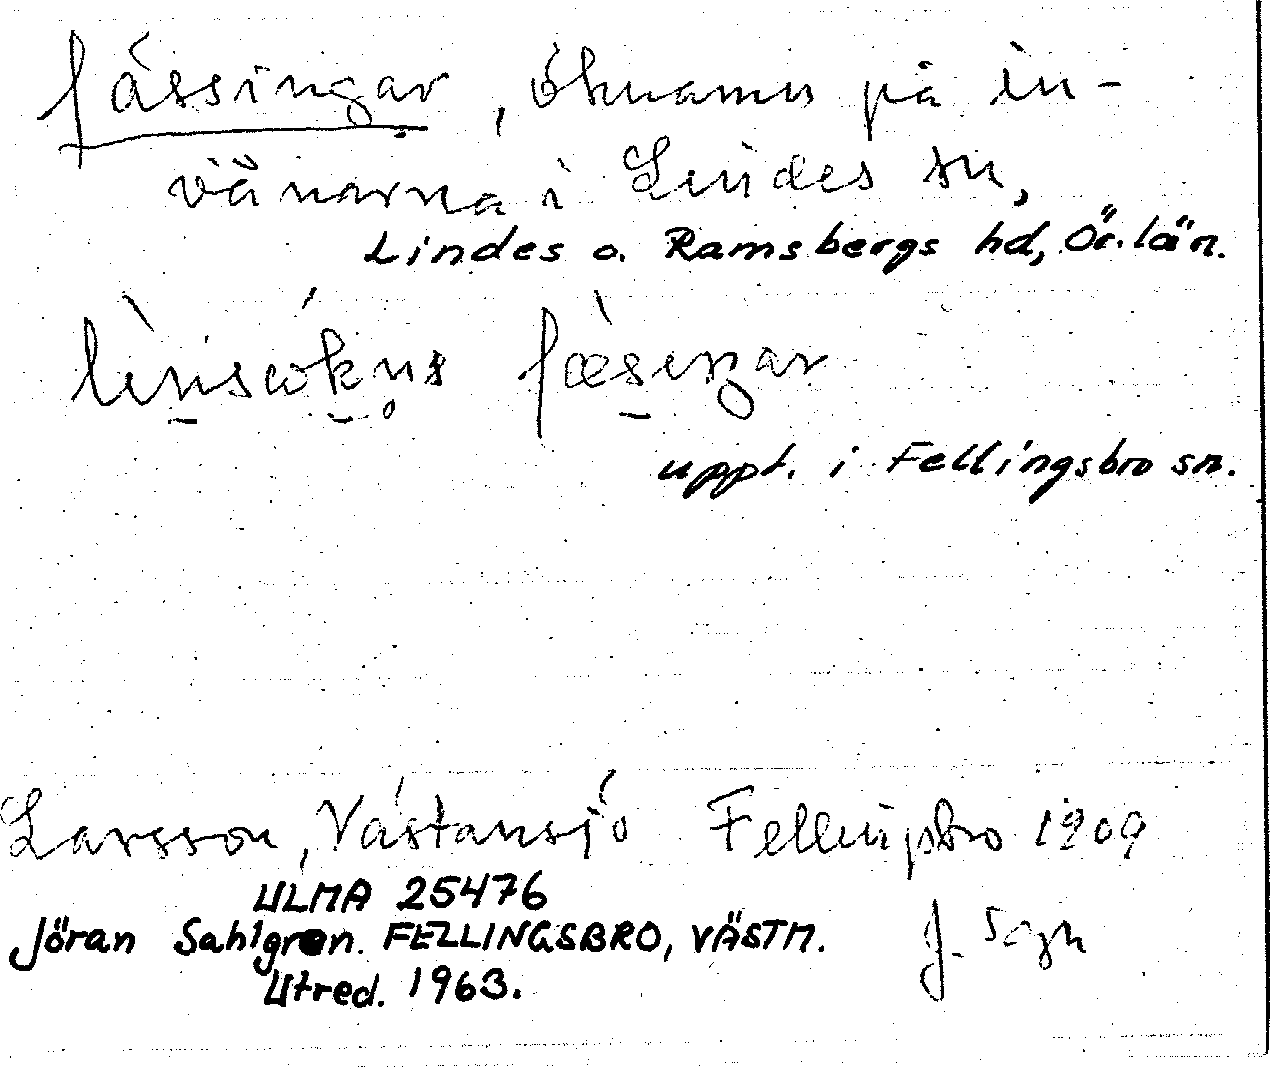 fässingar, öknamn på in-
vånarna i Lindes sn,
Lindes o. Ramsbergs hd, Ör. län.
uppt. i Fellingsbro sn.
Larsson, Västansjö Fellingsbro 1909
ULMA 25476
Jöran Sahlgren. FELLINGSBRO, VÄSTM. J. Sgn
Utred. 1963.